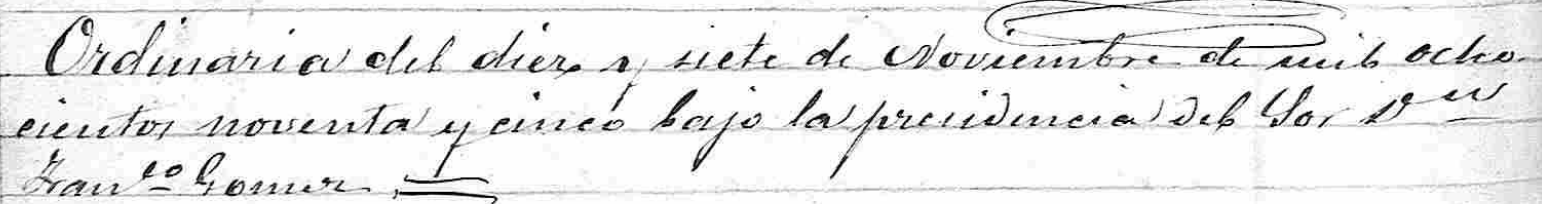 Ordinaria del diez y siete de Noviembre de mil ocho
cientos noventa y cinco bajo la presidencia del Sor Dn
Franco Gomez